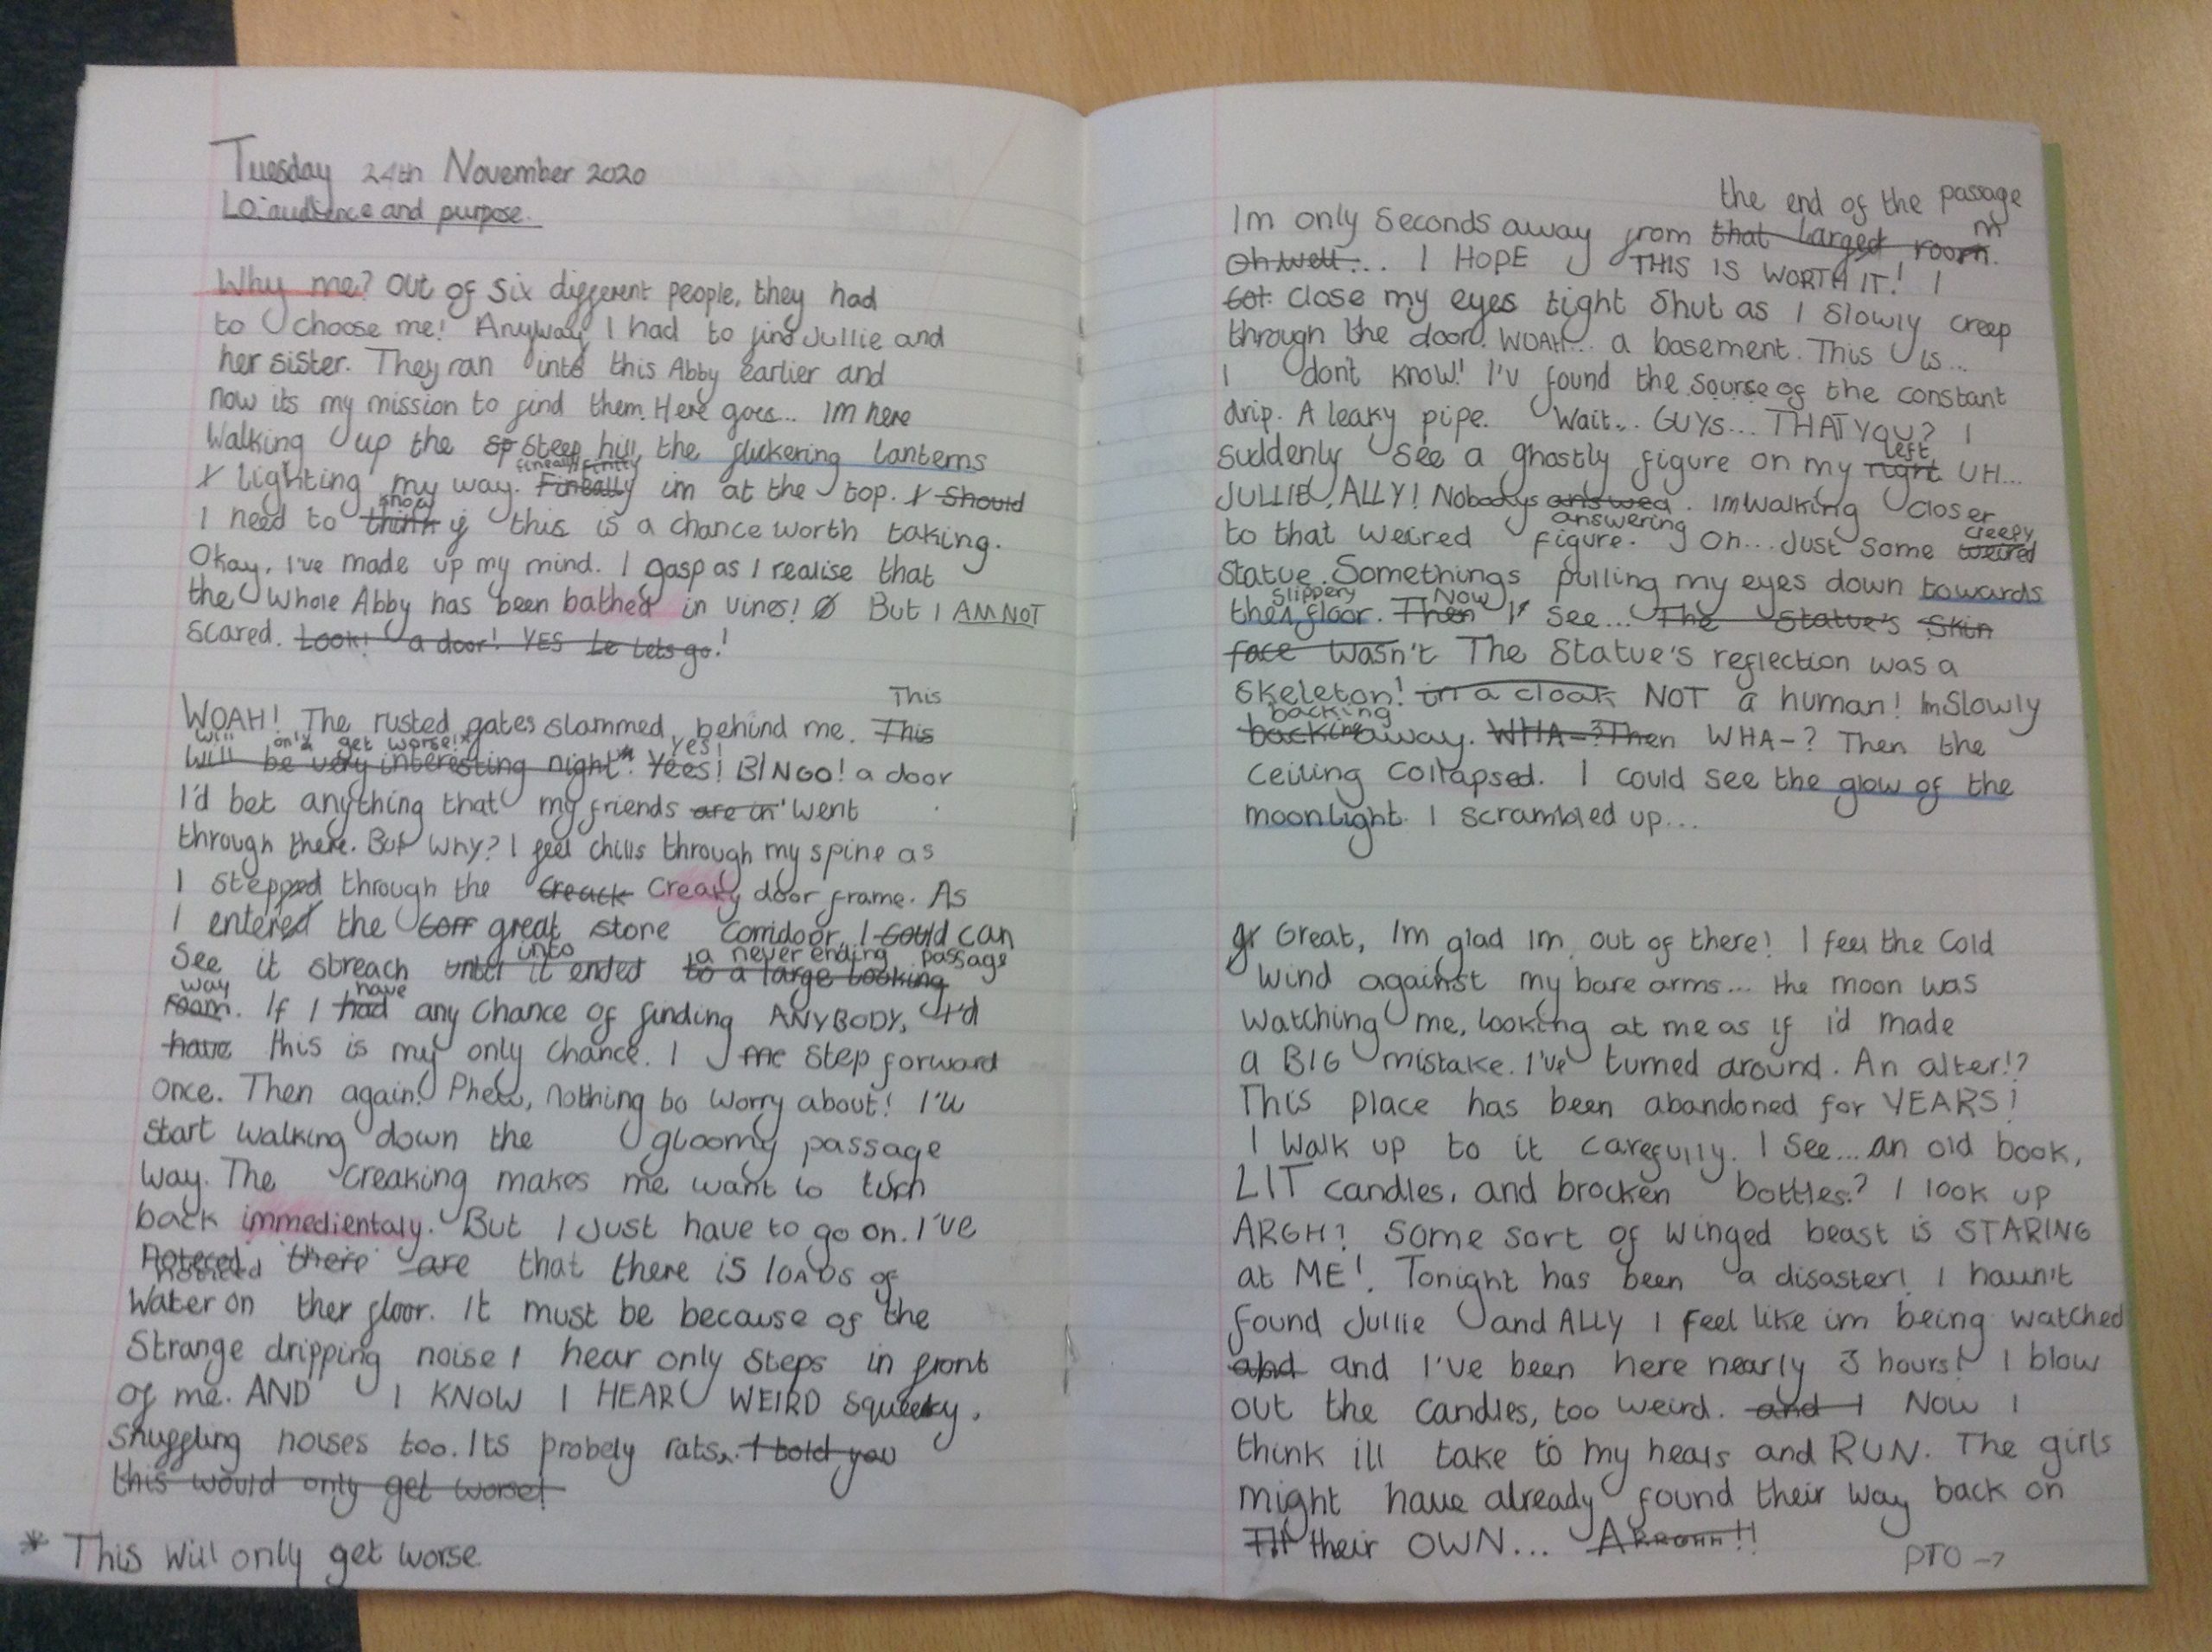 Tuesday 24th November 2020
LO: audience and purpose.
Why me? Out of six different people, they had
to choose me! Anyway, I had to find Jullie and
her sister. They ran into this Abby earlier and
now its my mission to find them. Here goes... Im here
Walking up the sp steep hill, the flickering lanterns
finally
lighting my way. Fineally im at the top. I should
know
I need to think if this is a chance worth taking.
Okay, I've made up my mind. I gasp as I realise that
the whole Abby has been bathed in vines! But I AM NOT
scared. Look! a door! YES Le Lets go!
This
WOAH! The rusted gates slammed behind me. This
will only get worse!* Yes!
will be very interesting night*. Yees! BINGO! a door
I'd bet anything that my friends are in went
through there. But why? I feel chills through my spine as
I stepped through the creack creaky door frame. As
I entered the corr great stone corridoor, I could can
into a never ending passage
see it streach until it ended to a large looking
way have
room. If I had any chance of finding ANYBODY, I'd
have this is my only chance. I me step forward
once. Then again! Phew, nothing bo worry about! I'll
start walking down the gloomy passage
way. The creaking makes me want to turn
back immedientaly. But I just have to go on. I've
Notered there are that there is loads of
noticed
water on ther floor. It must be because of the
strange dripping noise I hear only steps in front
of me. AND I KNOW I HEAR WEIRD squeeky,
snuggling noises too. Its probely rats. I told you
this would only get worse!
* This will only get worse
the end of the passage
Im only seconds away from that larged room.
Oh well... I HOPE THIS IS WORTH IT! I
Got close my eyes tight shut as I slowly creep
through the door. WOAH... a basement. This is...
I don't know! I'v found the sourse of the constant
drip. A leaky pipe. Wait... GUYS... THAT YOU? I
left
suddenly see a ghostly figure on my right UH...
JULLIE, ALLY! Nobodys answed. Im walking closer
answering creepy
to that weired figure. Oh... Just some weired
statue. Somethings pulling my eyes down towards
slippery Now
the floor. Then I see... The statue's skin
face wasn't The statue's reflection was a
skeleton! in a cloak NOT a human! Im slowly
backing
backing away. WHA-? Then WHA-? Then the
ceiling collapsed. I could see the glow of the
moonlight. I scrambled up...
gr Great, Im glad Im out of there! I feel the cold
wind against my bare arms... the moon was
watching me, looking at me as if i'd made
a BIG mistake. I've turned around. An alter!?
This place has been abandoned for YEARS!
I walk up to it carefully. I see... an old book,
LIT candles, and brocken bottles? I look up
ARGH! Some sort of winged beast is STARING
at ME! Tonight has been a disaster! I haun't
found Jullie and ALLY I feel like im being watched
and and I've been here nearly 3 hours! I blow
out the candles, too weird. and I Now I
think ill take to my heals and RUN. The girls
might have already found their way back on
their OWN...
PTO →